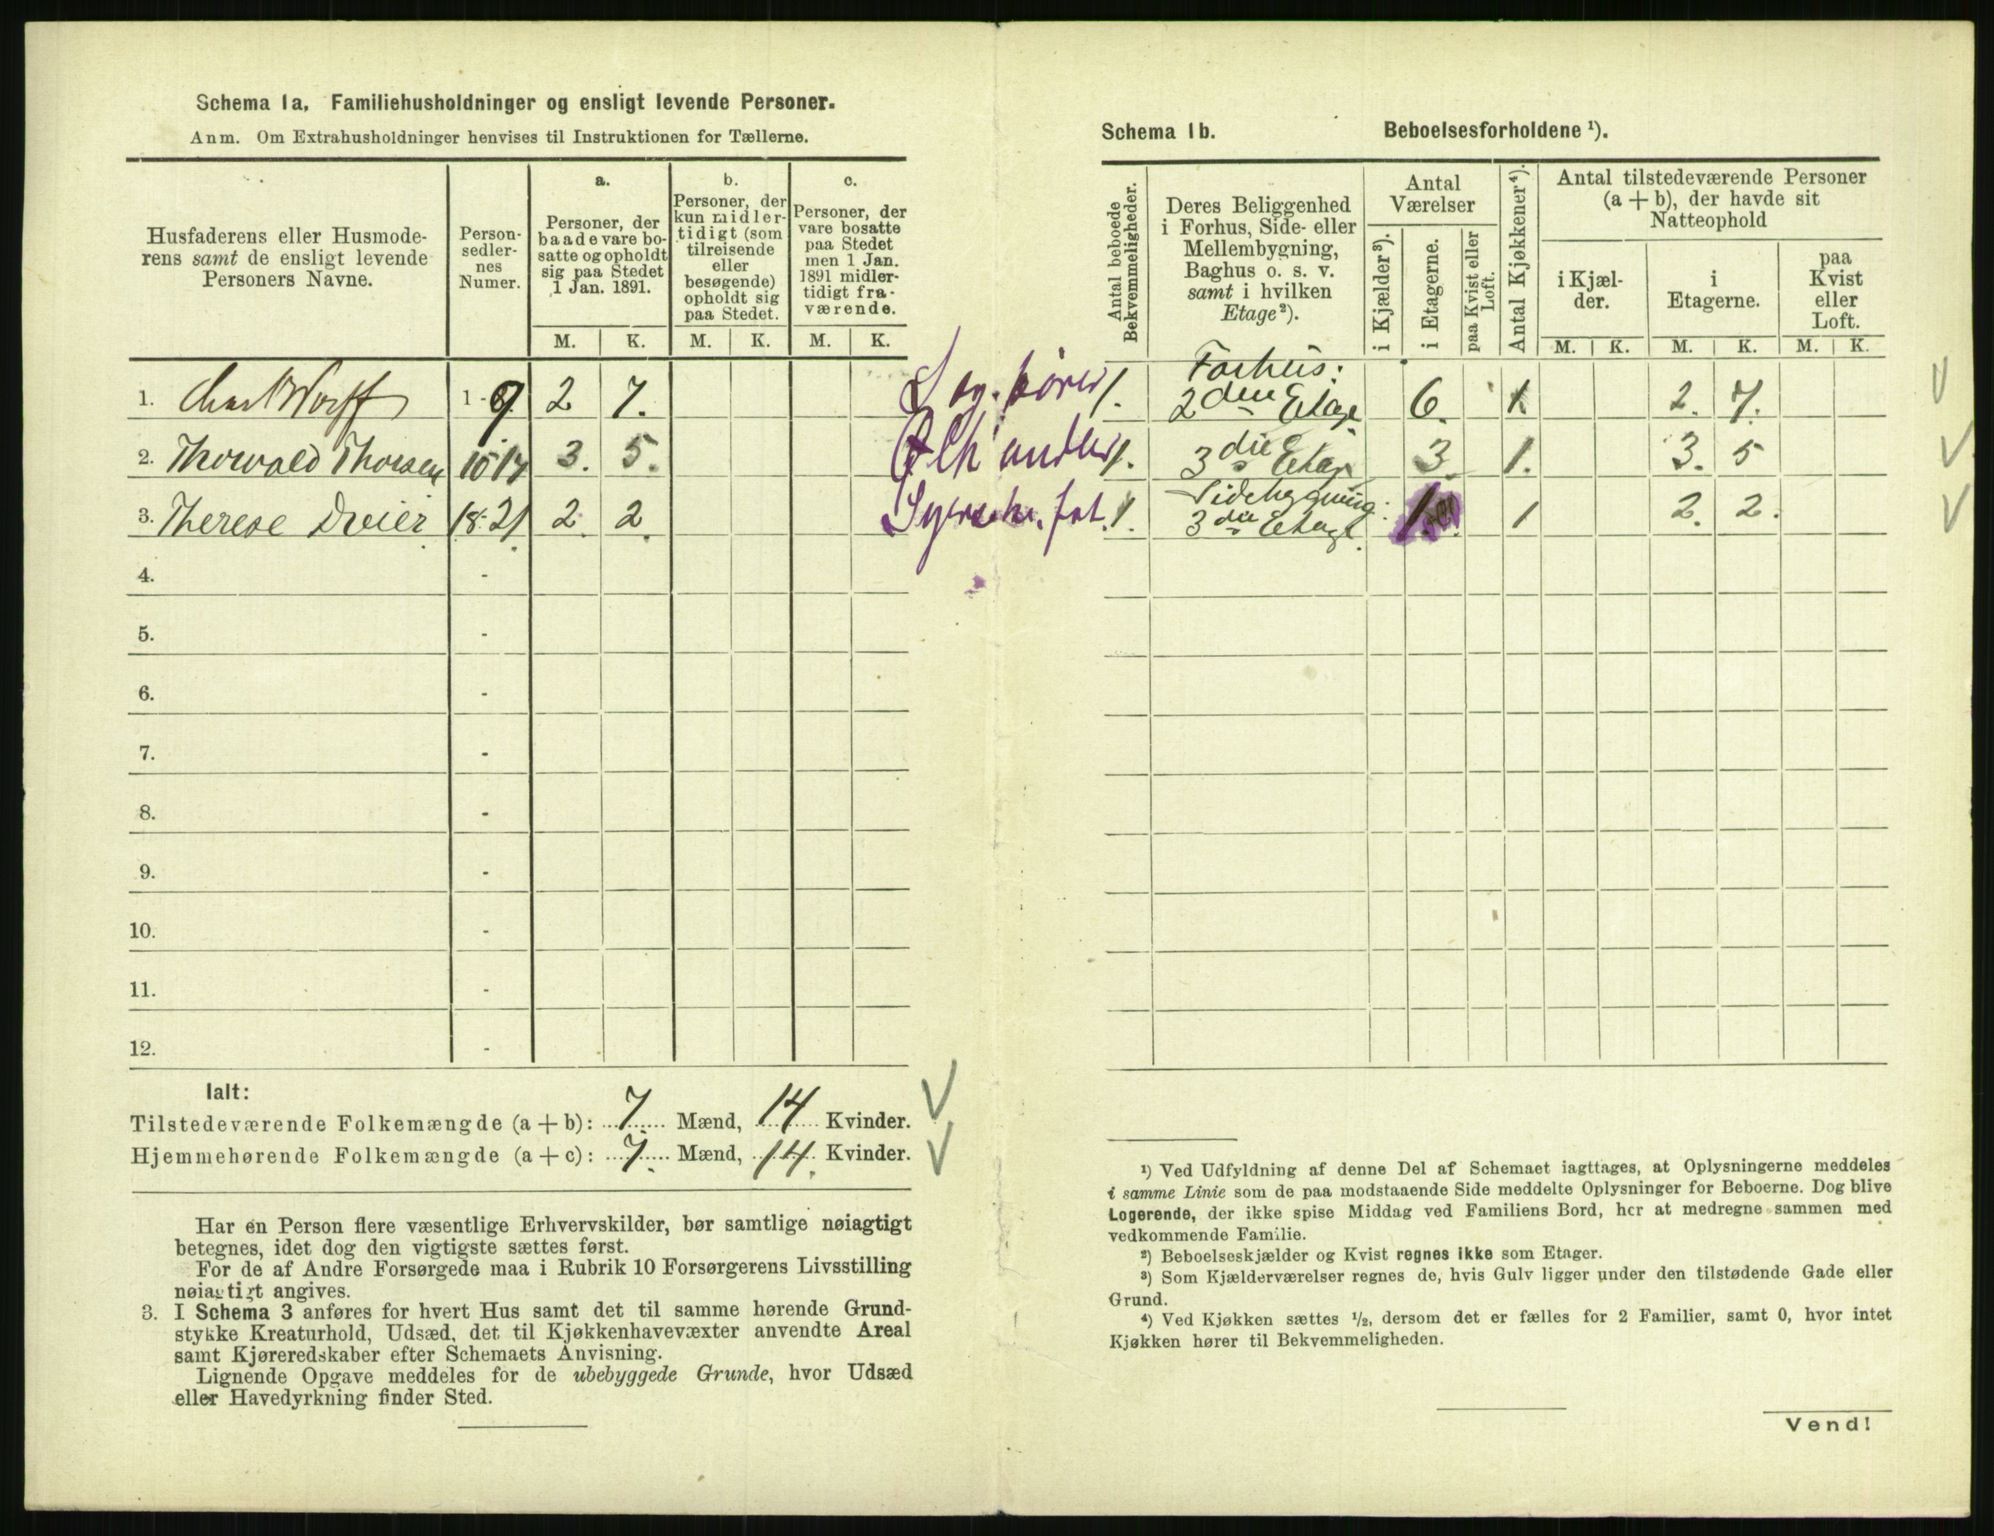 Schema 1a. Familiehusholdninger og ensligt levende Personer.
Anm. Om Extrahusholdninger henvises til Instruktionen for Tællerne.
Husfaderens eller Husmode-
rens samt de ensligt levende
Personers Navne.
Person-
sedler-
nes
Numer.
a.
Personer, der
baade vare bo-
satte og opholdt
sig paa Stedet
1 Jan. 1891.
b.
Personer, der
kun midler-
tidigt (som
tilreisende
eller
besøgende)
opholdt sig
paa Stedet.
c.
Personer, der
vare bosatte
paa Stedet
men 1 Jan.
1891 midler-
tidigt fra-
værende.
M. K. M. K. M. K.
1. 1-9 2 7.
2. Thorvald Thorsen 10-17 3. 5.
3. Therese Dreier 18-21 2. 2.
4. -
5. -
6. -
7. -
8. -
9. -
10. -
11. -
12. -
Ialt:
Tilstedeværende Folkemængde (a + b): 7 Mænd, 14 Kvinder.
Hjemmehørende Folkemængde (a + c): 7. Mænd, 14. Kvinder.
Har en Person flere væsentlige Erhvervskilder, bør samtlige nøiagtigt
betegnes, idet dog den vigtigste sættes først.
For de af Andre Forsørgede maa i Rubrik 10 Forsørgerens Livsstilling
nøiagtigt angives.
3. I Schema 3 anføres for hvert Hus samt det til samme hørende Grund-
stykke Kreaturhold, Udsæd, det til Kjøkkenhavevæxter anvendte Areal
samt Kjøreredskaber efter Schemaets Anvisning.
Lignende Opgave meddeles for de ubebyggede Grunde, hvor Udsæd
eller Havedyrkning finder Sted.
Schema 1b. Beboelsesforholdene ¹).
Antal beboede
Bekvemmeligheder.
Deres Beliggenhed
i Forhus, Side- eller
Mellembygning,
Baghus o. s. v.
samt i hvilken
Etage²).
Antal
Værelser
i Kjælder³).
i Etagerne.
paa Kvist eller
Loft.
Antal Kjøkkener⁴).
Antal tilstedeværende Personer
(a + b), der havde sit
Natteophold
i Kjæl-
der.
i
Etagerne.
paa
Kvist
eller
Loft.
M. K. M. K. M. K.
Forhus:
1. 2den Etage 6. 1. 2. 7.
1. 3die Etage 3. 1. 3. 5
Sidebygning:
1. 3die Etage. 1. 1 2. 2.
¹) Ved Udfyldning af denne Del af Schemaet iagttages, at Oplysningerne meddeles
i samme Linie som de paa modstaaende Side meddelte Oplysninger for Beboerne. Dog blive
Logerende, der ikke spise Middag ved Familiens Bord, her at medregne sammen med
vedkommende Familie.
²) Beboelseskjælder og Kvist regnes ikke som Etager.
³) Som Kjælderværelser regnes de, hvis Gulv ligger under den tilstødende Gade eller
Grund.
⁴) Ved Kjøkken sættes ½, dersom det er fælles for 2 Familier, samt 0, hvor intet
Kjøkken hører til Bekvemmeligheden.
Vend!